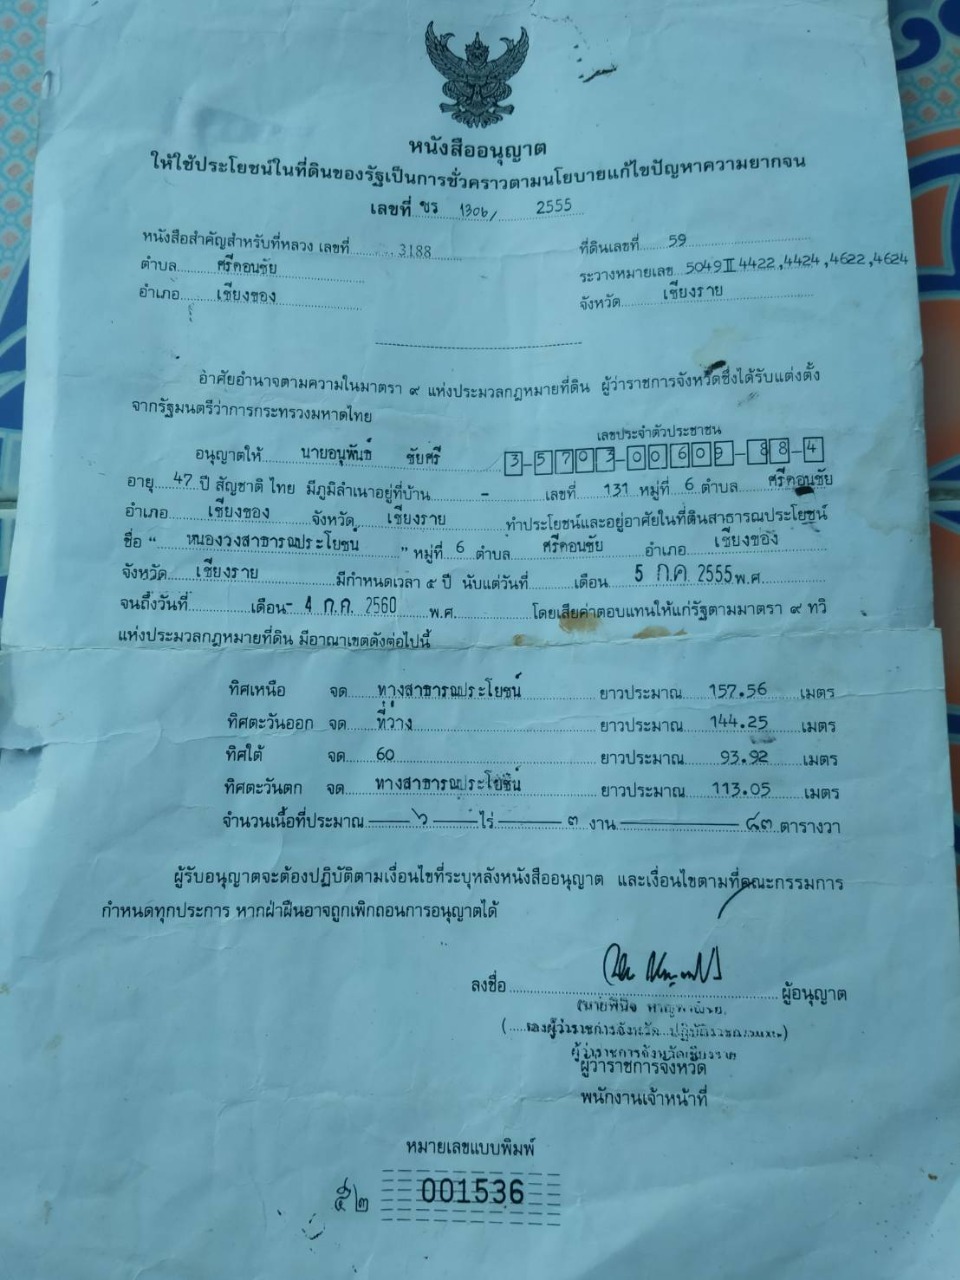 หนังสืออนุญาต
ให้ใช้ประโยชน์ในที่ดินของรัฐเป็นการชั่วคราวตามนโยบายแก้ไขปัญหาความยากจน
เลขที่ ชร 1306/ 2555
หนังสือสำคัญสำหรับที่หลวง เลขที่ 3188 ที่ดินเลขที่ 59
ตำบล ศรีดอนชัย ระวางหมายเลข 5049 II 4422, 4424, 4622, 4624
อำเภอ เชียงของ จังหวัด เชียงราย
อาศัยอำนาจตามความในมาตรา ๙ แห่งประมวลกฎหมายที่ดิน ผู้ว่าราชการจังหวัดซึ่งได้รับแต่งตั้ง
จากรัฐมนตรีว่าการกระทรวงมหาดไทย
เลขประจำตัวประชาชน
อนุญาตให้ นายอนุพันธ์ ชัยศรี 3-5703-00609-88-4
อายุ 47 ปี สัญชาติ ไทย มีภูมิลำเนาอยู่ที่บ้าน - เลขที่ 131 หมู่ที่ 6 ตำบล ศรีดอนชัย
อำเภอ เชียงของ จังหวัด เชียงราย ทำประโยชน์และอยู่อาศัยในที่ดินสาธารณประโยชน์
ชื่อ " หนองวงสาธารณประโยชน์ " หมู่ที่ 6 ตำบล ศรีดอนชัย อำเภอ เชียงของ
จังหวัด เชียงราย มีกำหนดเวลา ๕ ปี นับแต่วันที่ เดือน 5 ก.ค. 2555 พ.ศ.
จนถึงวันที่ เดือน - 4 ก.ค. 2560 พ.ศ. โดยเสียค่าตอบแทนให้แก่รัฐตามมาตรา ๙ ทวิ
แห่งประมวลกฎหมายที่ดิน มีอาณาเขตดังต่อไปนี้
ทิศเหนือ จด ทางสาธารณประโยชน์ ยาวประมาณ 157.56 เมตร
ทิศตะวันออก จด ที่ว่าง ยาวประมาณ 144.25 เมตร
ทิศใต้ จด 60 ยาวประมาณ 93.92 เมตร
ทิศตะวันตก จด ทางสาธารณประโยชน์ ยาวประมาณ 113.05 เมตร
จำนวนเนื้อที่ประมาณ ๖ ไร่ ๓ งาน ๘๓ ตารางวา
ผู้รับอนุญาตจะต้องปฏิบัติตามเงื่อนไขที่ระบุหลังหนังสืออนุญาต และเงื่อนไขตามที่คณะกรรมการ
กำหนดทุกประการ หากฝ่าฝืนอาจถูกเพิกถอนการอนุญาตได้
ลงชื่อ ผู้อนุญาต
(นายพินิจ
(รองผู้ว่าราชการจังหวัด ปฏิบัติราชการแทน)
ผู้ว่าราชการจังหวัดเชียงราย
ผู้ว่าราชการจังหวัด
พนักงานเจ้าหน้าที่
หมายเลขแบบพิมพ์
๕๒ 001536